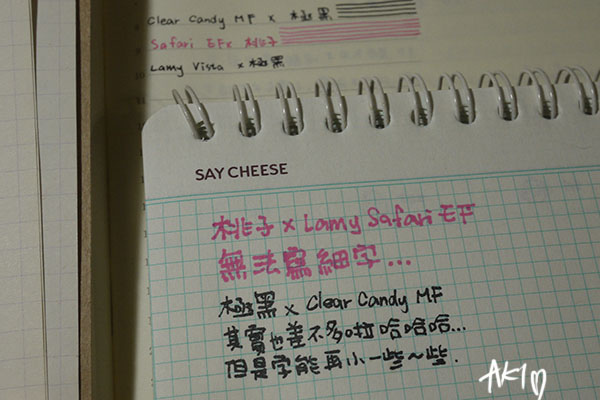 Clear Candy MF x 極黑
Safari EF x 桃子
Lamy Vista x 極黑
SAY CHEESE
桃子 x Lamy Safari EF
無法寫細字...
極黑 x Clear Candy MF
其實也差不多啦哈哈哈...
但是字能再小一些～些.
AKI♡